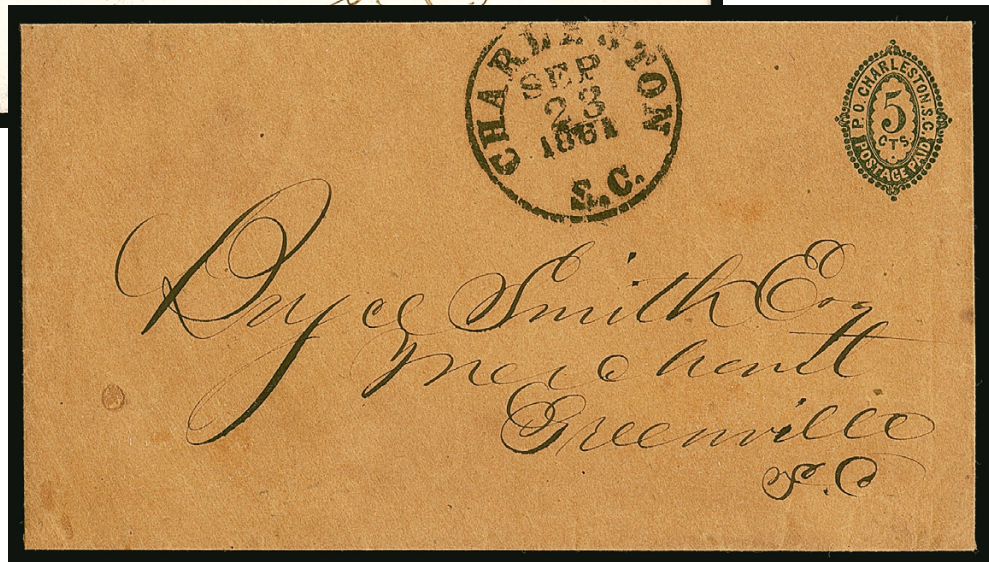 CHARLESTON
SEP
23
1861
S.C.
P.O. CHARLESTON, S.C.
5
CTS.
POSTAGE PAID
Bryce Smith Esq
Merchant
Greenville
S.C